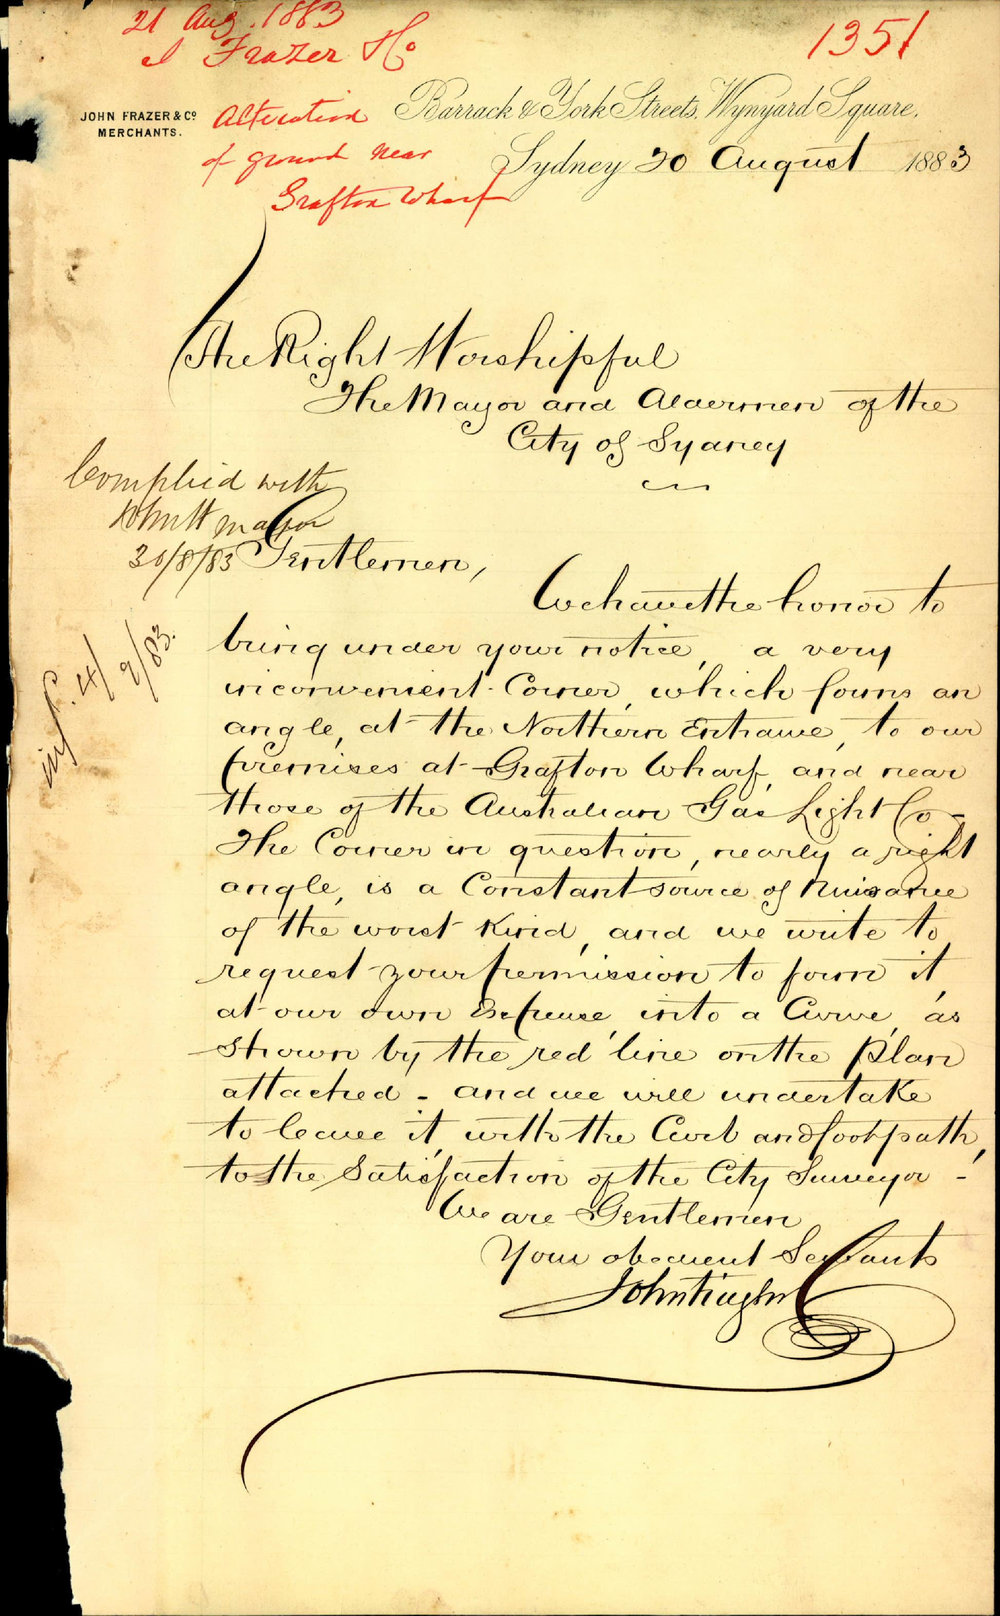 21 Aug. 1883
J Frazer & Co
1351
Alteration
of ground near
Grafton Wharf
JOHN FRAZER & Co
MERCHANTS.
Barrack & York Streets, Wynyard Square,
Sydney 20 August 1883
The Right Worshipful
The Mayor and Aldermen of the
City of Sydney
Complied with
Mayor
30/8/83
Gentlemen,
We have the honor to
bring under your notice, a very
inconvenient Corner, which forms an
angle, at the Northern Entrance, to our
premises at Grafton Wharf, and near
those of the Australian Gas Light Co -
The Corner in question, nearly a right
angle, is a Constant source of Nuisance
of the worst Kind, and we write to
request your permission to form it,
at our own Expense, into a Curve, as
shown by the red line on the Plan
attached - and we will undertake
to leave it, with the Curb and footpath,
to the Satisfaction of the City Surveyor -
We are Gentlemen
Your obedient Servants
John Frazer &amp; Co